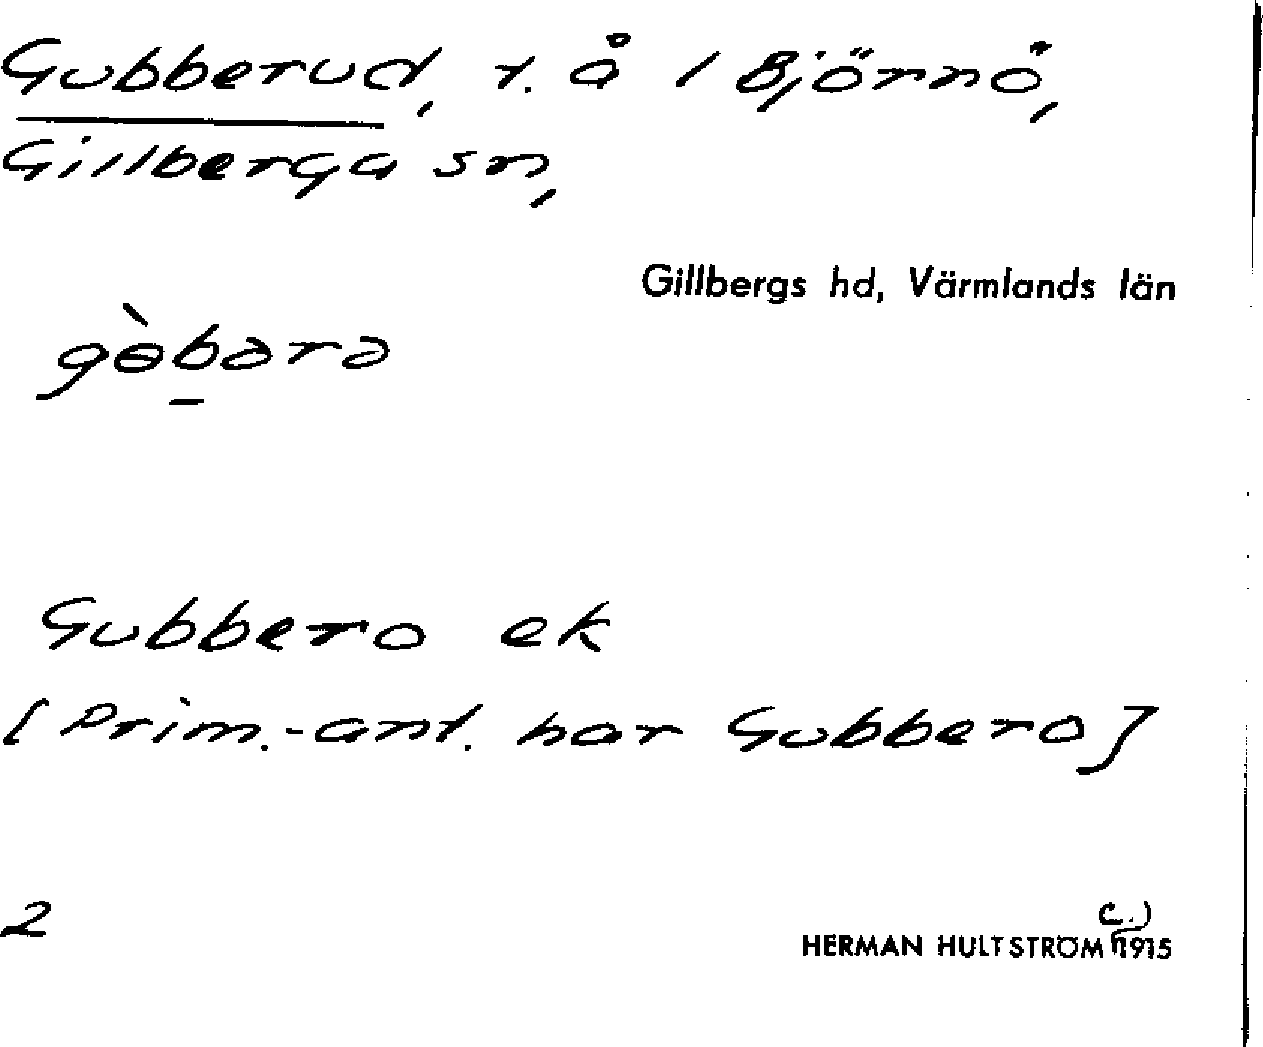 Gubberud, t. å / Björnö,
Gillberga sn,
Gillbergs hd, Värmlands län
gɵ̀bərə
Gubbero ek
[Prim.-ant. har Gubbero]
2
c.)
HERMAN HULTSTRÖM 1915